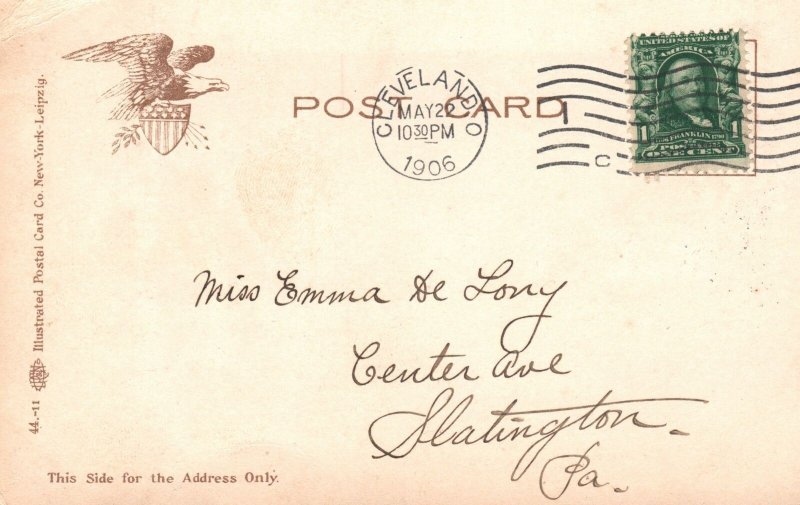 POST CARD
CLEVELAND O
MAY 22
10 30 PM
1906
1
C
UNITED STATES OF
AMERICA
FRANKLIN
1 1
ONE CENT
Miss Emma De Long
Center Ave
Slatington
Pa.
44.-11 Illustrated Postal Card Co. New-York-Leipzig.
This Side for the Address Only.